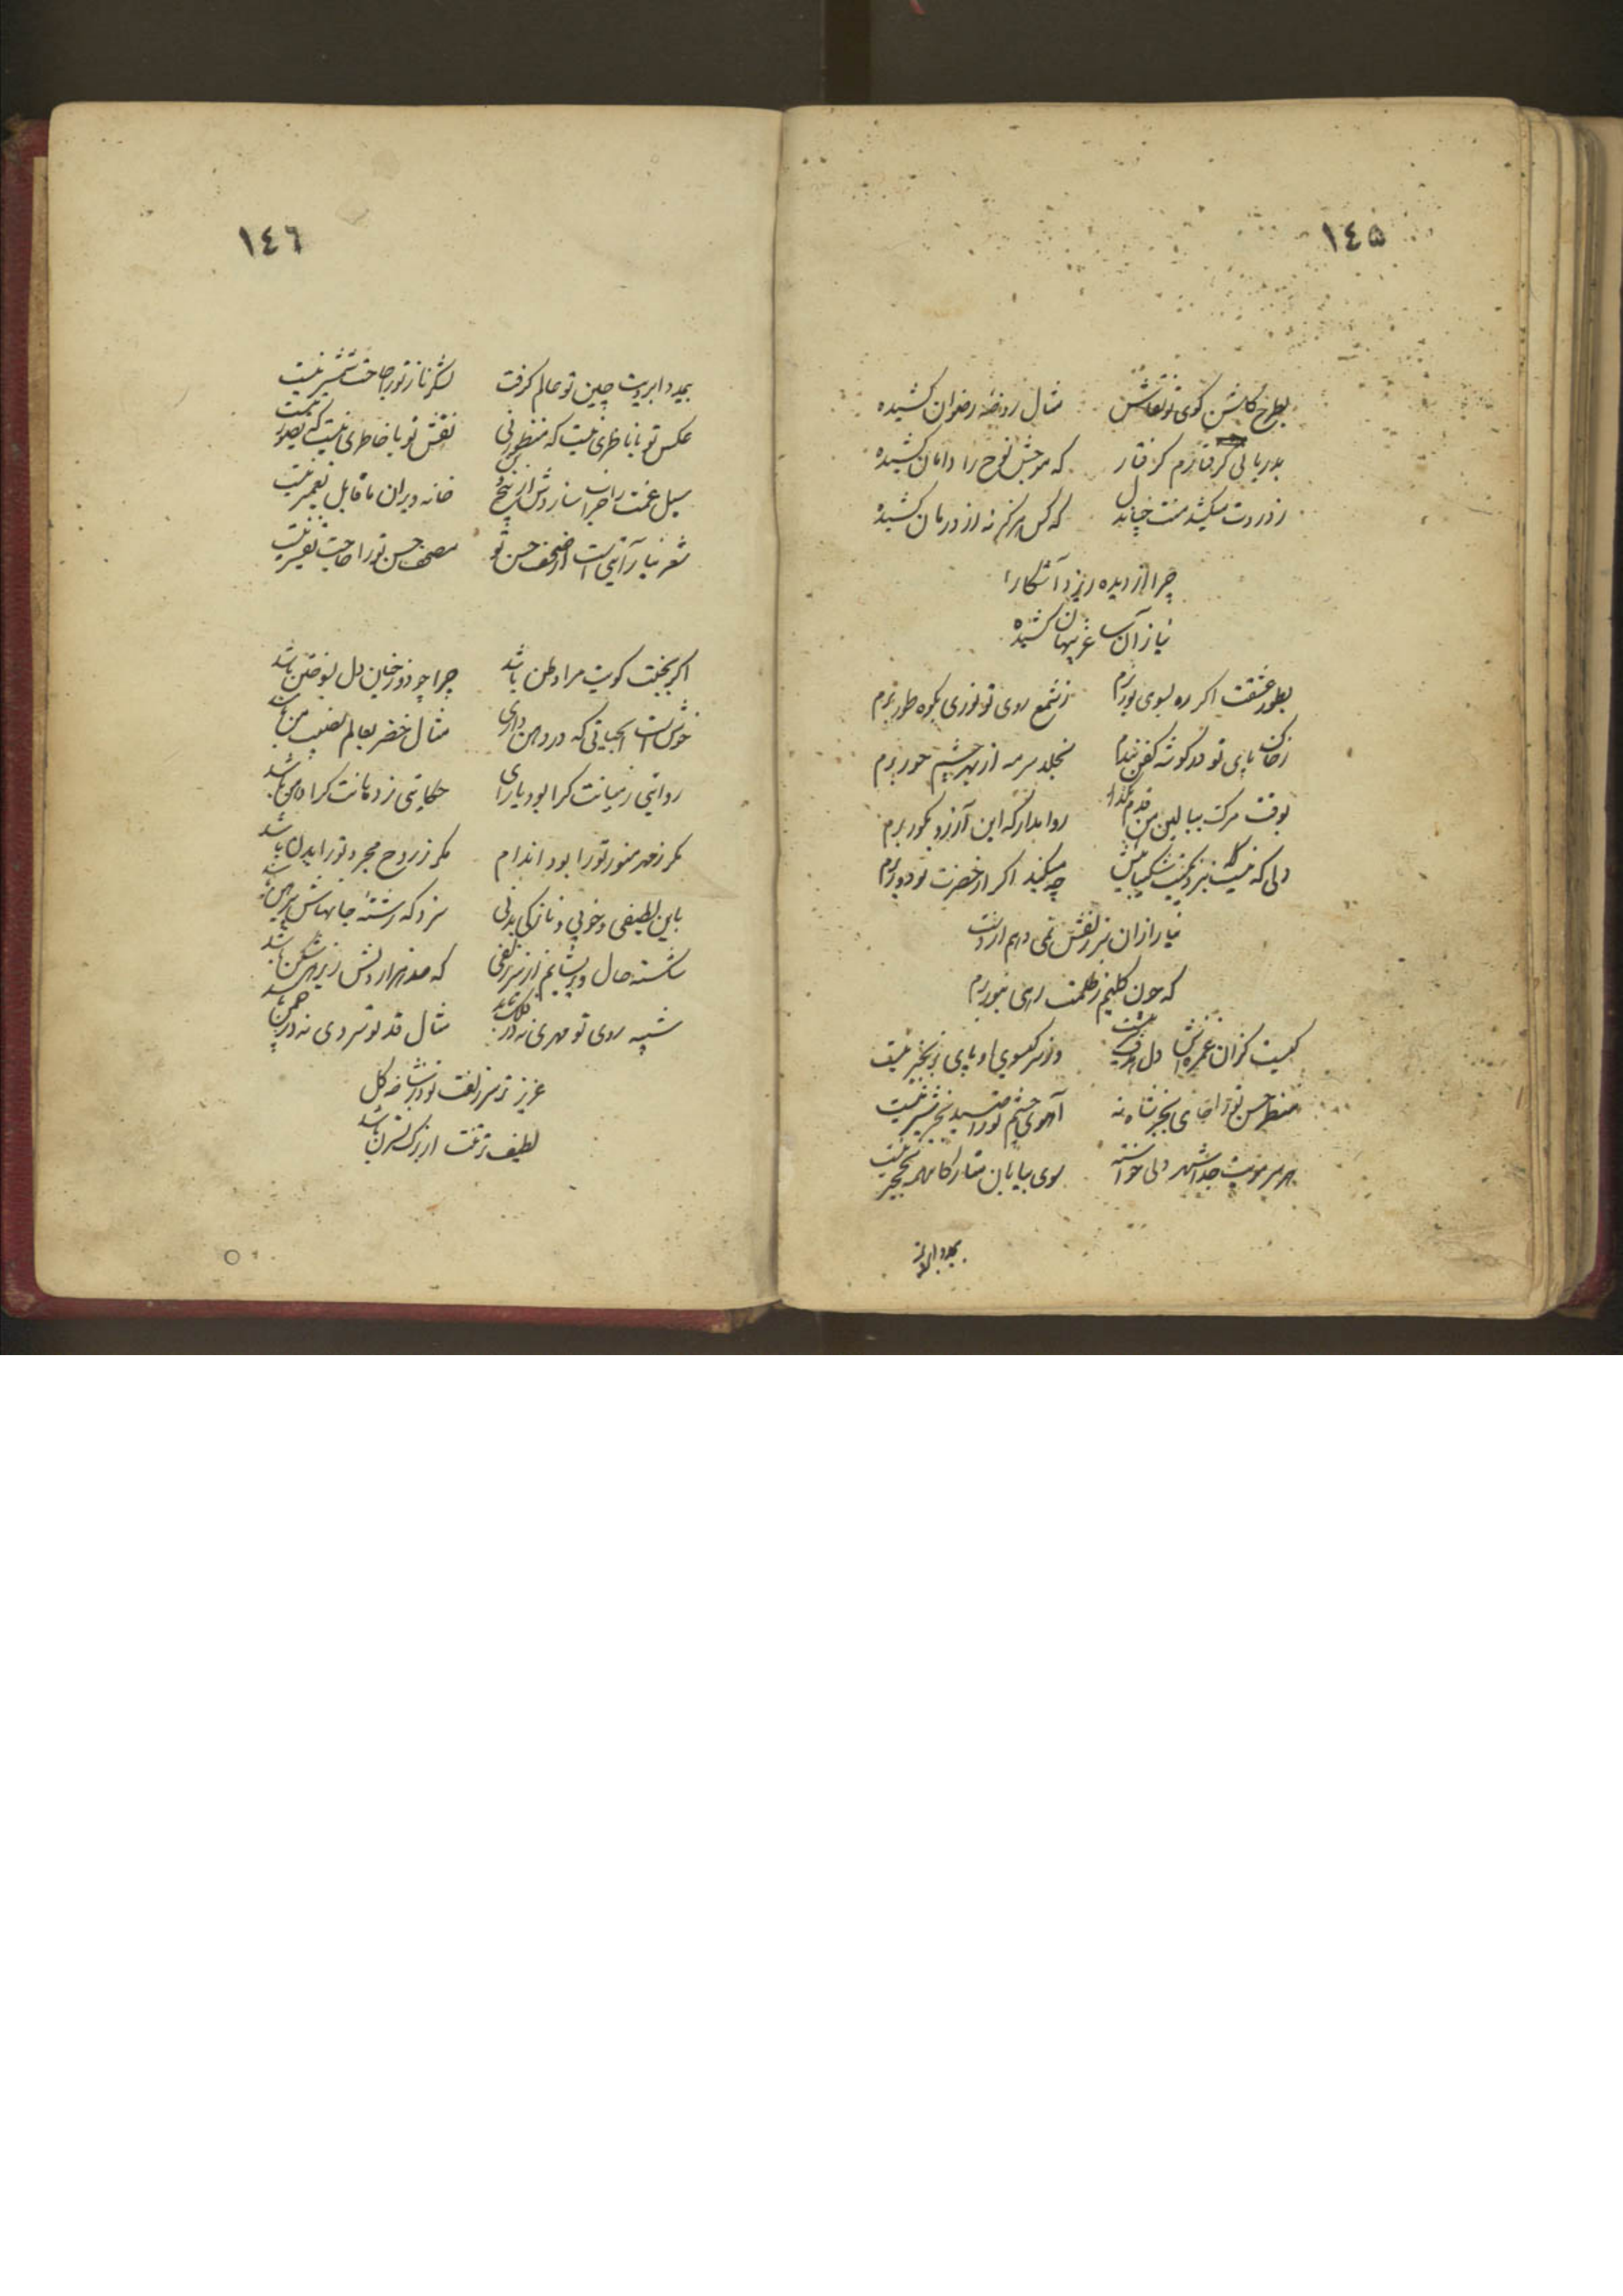 ١٤٥
بطرح گلشن کوی تو نقاش مثال روضه رضوان کشیده
بدریائی گرفتارم گرفتار که موجش نوح را دامان کشیده
ز دردت میکشد منت چنان دل که کس هرگز نه از درمان کشیده
چرا از دیده ریزد آشکارا
نیاز آن ساغر پنهان کشیده
بطور عشقت اگر ره بسوی نور برم ز شمع روی تو نوری بکوه طور برم
ز خاک پای تو در گوشه کفن بندم بخلد سرمه از بهر چشم حور برم
بوقت مرگ ببالین من قدم بگذار روا مدار که این آرزو بگور برم
دلی که نیست بنزدیکیت شکیبائیش چه میکند اگر از حضرت تو دور برم
نیاز از آن سر زلفش نمی دهم از دست
که چون کلیم ز ظلمت رهی بنور برم
کیست کزان غمزه اش دل هدف تیر نیست وز سر گیسوی او پای بزنجیر نیست
منظر حسن تو را جای بجز شاه نه آهوی چشم تو را صید بجز شیر نیست
هر سر مویت جدا شهر دلی خواسته سوی بیابان متاز کاینهمه نخجیر نیست
بمدد ابروت
١٤٦
بمدد ابرویت چین تو عالم گرفت لشکر ناز تو را حاجت شمشیر نیست
عکس تو با ناظری نیست که منظور نی نقش تو با خاطری نیست که تصویر نیست
سیل غمت را خراب ساز دلش از بیخ و بن خانه ویران ما قابل تعمیر نیست
شعر نیاز آیتی است از صحف حسن تو مصحف حسن تو را حاجت تفسیر نیست
اگر بجنت کویت مرا وطن باشد چرا چو دوزخیان دل بسوختن باشد
خوش است آبحیاتی که در دهن داری مثال خضر بعالم نصیب من باشد
روایتی ز میانت کرا بود یارای حکایتی ز دهانت کرا دهن باشد
مگر ز مهر منور تو را بود اندام مگر ز روح مجرد تو را بدن باشد
باین لطیفی و خوبی و نازکی بدنی سزد که رشته جانهاش پیرهن باشد
شکسته حال و پریشانم از سر زلفی که صد هزار دلش زیر هر شکن باشد
شبیه روی تو مهری نه در فلک تابد مثال قد تو سروی نه در چمن باشد
عزیز تر سر زلفت نو در شاخه گل
لطیف تر تنت از برگ نسترن باشد